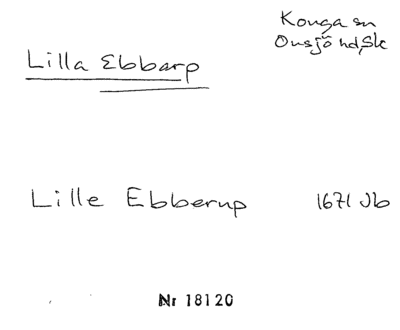 Konga sn
Onsjö hd, Sk
Lilla Ebbarp
Lille Ebberup 1671 Jb
Nr 18120